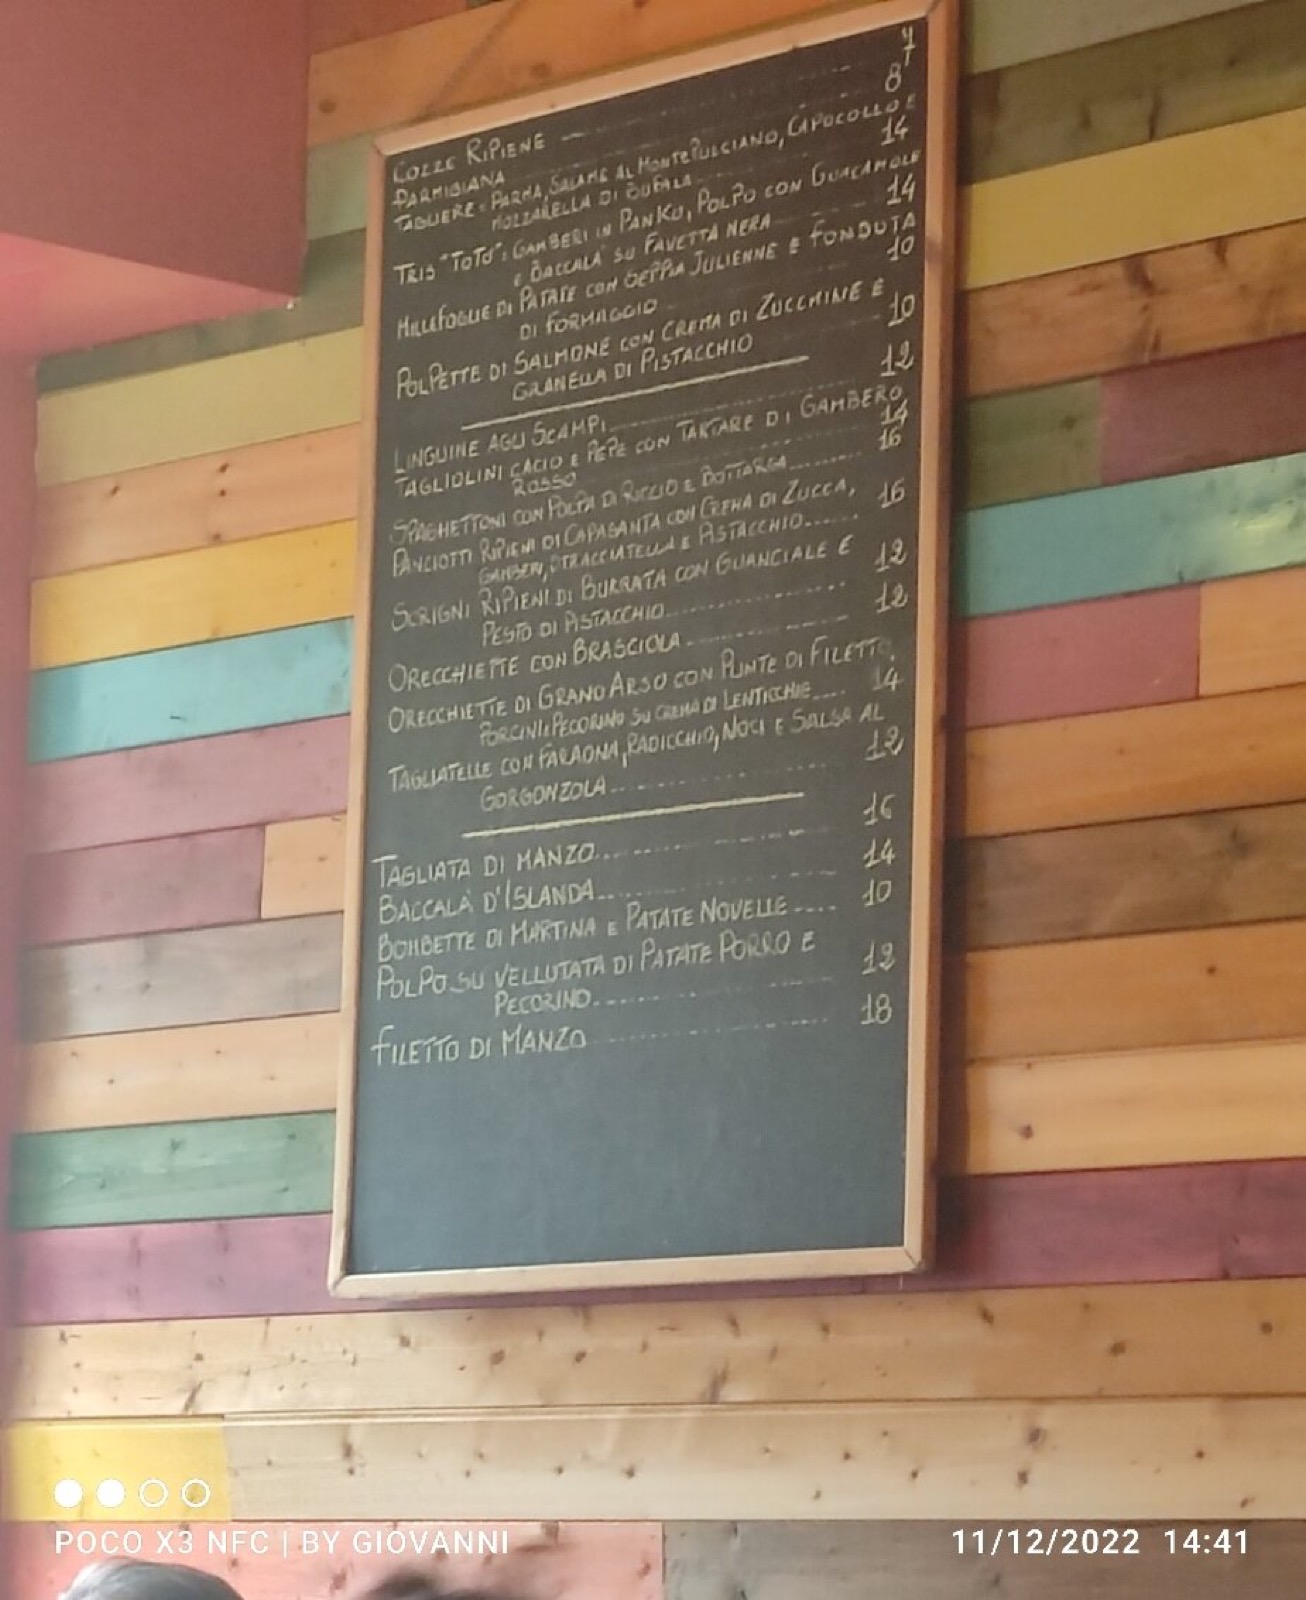 COZZE RIPIENE 7
PARMIGIANA 8
TAGLIERE: PARMA, SALAME AL MONTEPULCIANO, CAPOCOLLO E
MOZZARELLA DI BUFALA 14
TRIS "TOTÒ": GAMBERI IN PANKO, POLPO CON GUACAMOLE
E BACCALA' SU FAVETTA NERA 14
MILLEFOGLIE DI PATATE CON SEPPIA JULIENNE E FONDUTA
DI FORMAGGIO 10
POLPETTE DI SALMONE CON CREMA DI ZUCCHINE E
GRANELLA DI PISTACCHIO 10
LINGUINE AGLI SCAMPI 12
TAGLIOLINI CACIO E PEPE CON TARTARE DI GAMBERO
ROSSO 14
SPAGHETTONI CON POLPA DI RICCIO E BOTTARGA 16
PANCIOTTI RIPIENI DI CAPASANTA CON CREMA DI ZUCCA,
GAMBERI, STRACCIATELLA E PISTACCHIO 16
SCRIGNI RIPIENI DI BURRATA CON GUANCIALE E
PESTO DI PISTACCHIO 12
ORECCHIETTE CON BRASCIOLA 12
ORECCHIETTE DI GRANO ARSO CON PUNTE DI FILETTO,
PORCINI, PECORINO SU CREMA DI LENTICCHIE 14
TAGLIATELLE CON FARAONA, RADICCHIO, NOCI E SALSA AL
GORGONZOLA 12
TAGLIATA DI MANZO 16
BACCALÀ D'ISLANDA 14
BOMBETTE DI MARTINA E PATATE NOVELLE 10
POLPO SU VELLUTATA DI PATATE PORRO E
PECORINO 12
FILETTO DI MANZO 18
POCO X3 NFC | BY GIOVANNI
11/12/2022 14:41